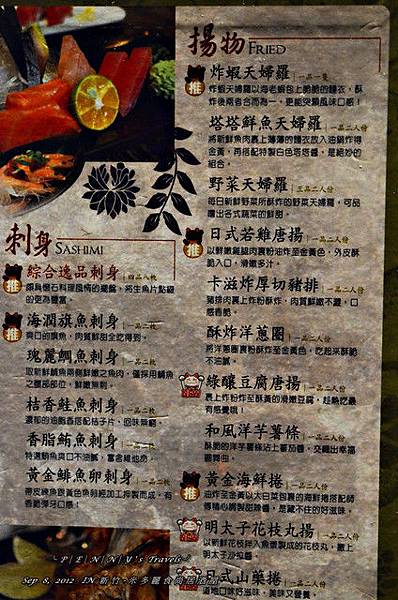 揚物 FRIED
炸蝦天婦羅 一品一隻
炸蝦天婦羅以海老蝦包上脆脆的麵衣,酥
炸後兩者合而為一,更能突顯風味口感!
塔塔鮮魚天婦羅 一品二人份
將新鮮魚肉裹上薄薄的麵衣放入油鍋炸得
金黃,再搭配特製白色塔塔醬,是絕妙的
組合。
野菜天婦羅
每日新鮮野菜所酥炸的野菜天婦羅,可品
嚐出各式蔬菜的鮮甜。
日式若雞唐揚 一品二人份
以鮮嫩雞腿肉裹粉油炸至金黃色,外皮酥
脆入口,滑嫩多汁。
卡滋炸厚切豬排 一品二人份
豬排肉裹上炸粉酥炸,肉質鮮嫩不澀,口
感香脆。
酥炸洋蔥圈 一品二人份
將洋蔥圈裹粉酥炸至金黃色,吃起來酥脆
不油膩。
綠釀豆腐唐揚 一品二人份
裹上炸粉炸至酥黃的滑嫩豆腐,趁熱吃最
有感覺哦!
和風洋芋薯條 一品二人份
酥脆的洋芋薯條沾上蕃茄醬,交織出幸福
的
黃金海鮮捲 一品二人份
油炸至金黃以大白菜包裹的海鮮捲搭配師
傅精心調製甜辣醬,是藏不住的好滋味。
明太子花枝丸揚 一品二人份
以新鮮花枝拌入魚漿製成的花枝丸,擠上
明太子沙拉醬
日式山藥捲
道地口味好滋味,美味又營養。
刺身 SASHIMI
綜合逸品刺身 四品八枚
頗具懷石料理風情的擺盤,將生魚片點綴
的更為豐富。
海潤旗魚刺身 一品二枚
爽口的旗魚,肉質鮮甜全吃得到。
瑰麗鯛魚刺身 一品二枚
取新鮮鯛魚兩側鮮嫩之魚肉,僅採用鯛魚
之腹部部位,鮮嫩無刺。
桔香鮭魚刺身 一品二枚
濃郁的油脂香搭配桔子片,回味無窮。
香脂鮪魚刺身 一品二枚
特選鮪魚爽口不油膩,富含維他命。
黃金鯡魚卵刺身 一品二枚
帶皮綠魚跟黃色魚卵經加工淬製而成,有
香脆彈牙口感!
推
推
推
推
推
推
~ P | E | N | N | Y's Travels ~
Sep 8, 2012 IN 新竹·水多麗食尚居酒屋